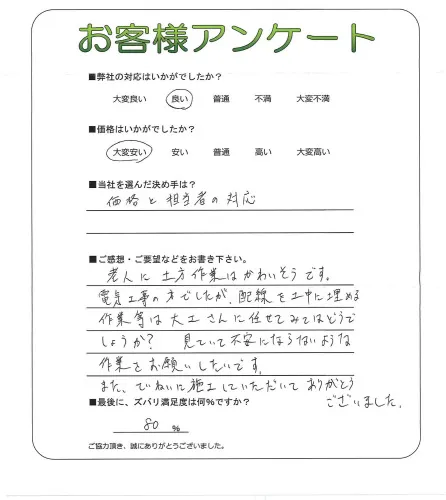 お客様アンケート
■弊社の対応はいかがでしたか？
大変良い 良い 普通 不満 大変不満
■価格はいかがでしたか？
大変安い 安い 普通 高い 大変高い
■当社を選んだ決め手は？
価格と担当者の対応
■ご感想・ご要望などをお書き下さい。
老人に土方作業はかわいそうです。
電気工事の方でしたが、配線を土中に埋める
作業等は大工さんに任せてみてはどうで
しょうか？ 見ていて不安にならないような
作業をお願いしたいです。
また、ていねいに施工していただいてありがとう
ございました。
■最後に、ズバリ満足度は何%ですか？
80 %
ご協力頂き、誠にありがとうございました。